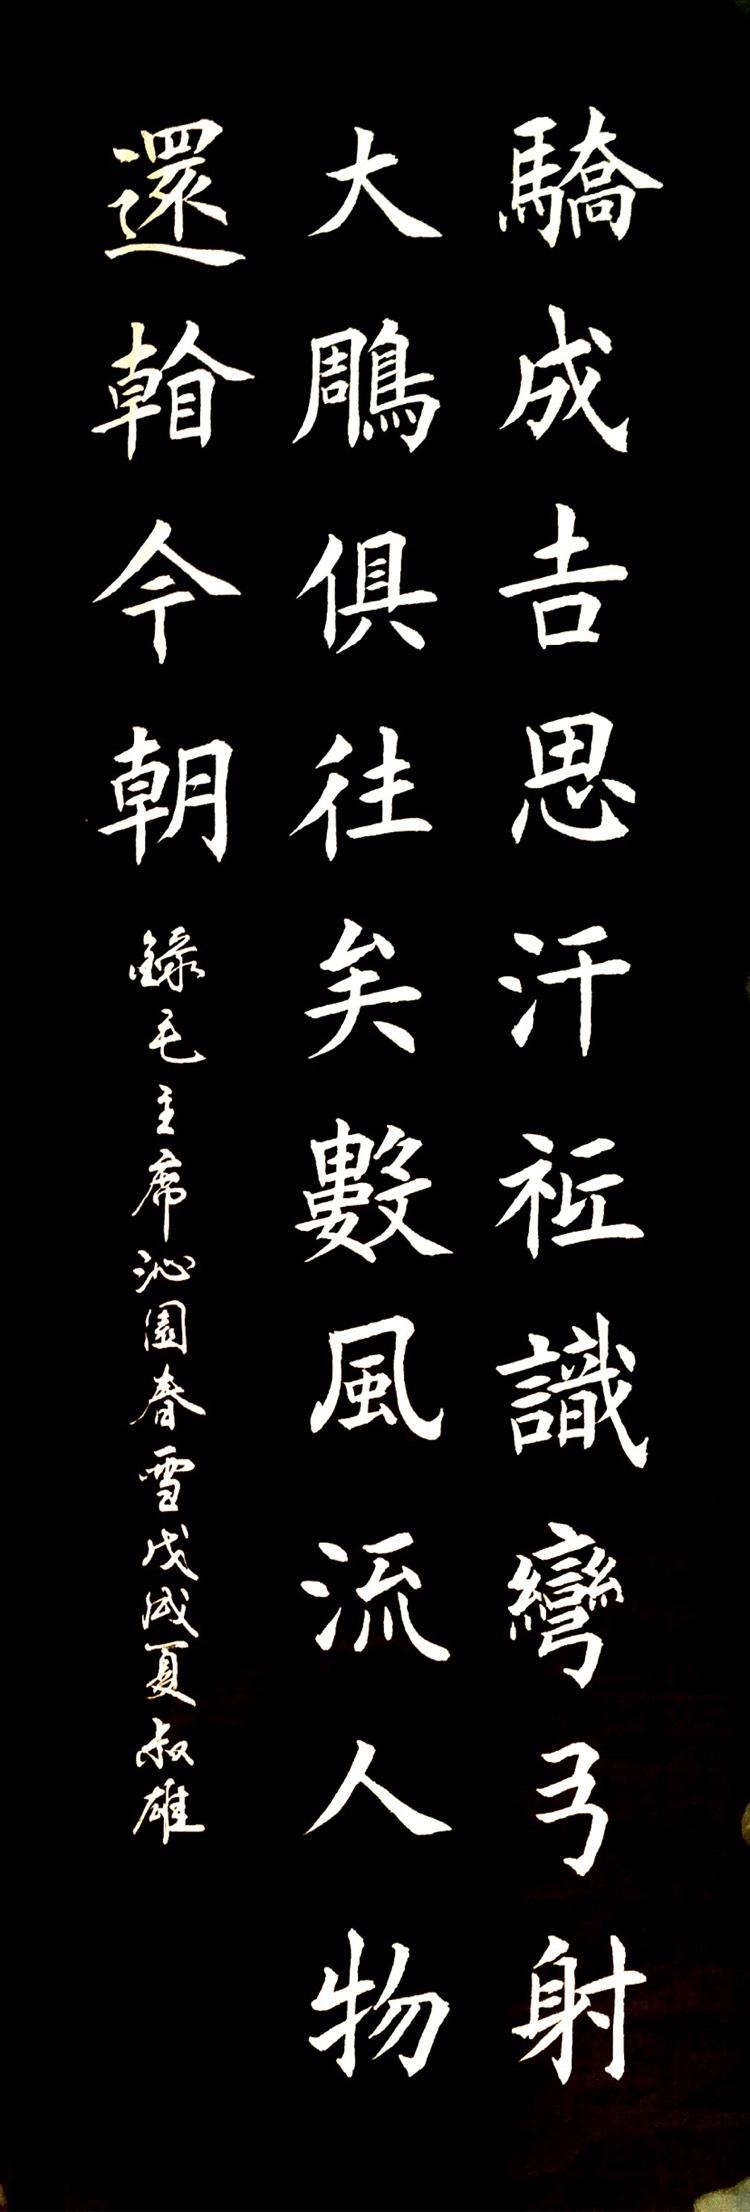 驕成吉思汗衹識彎弓射
大鵰俱往矣數風流人物
還看今朝
錄毛主席沁園春雪戊戌夏叔雄